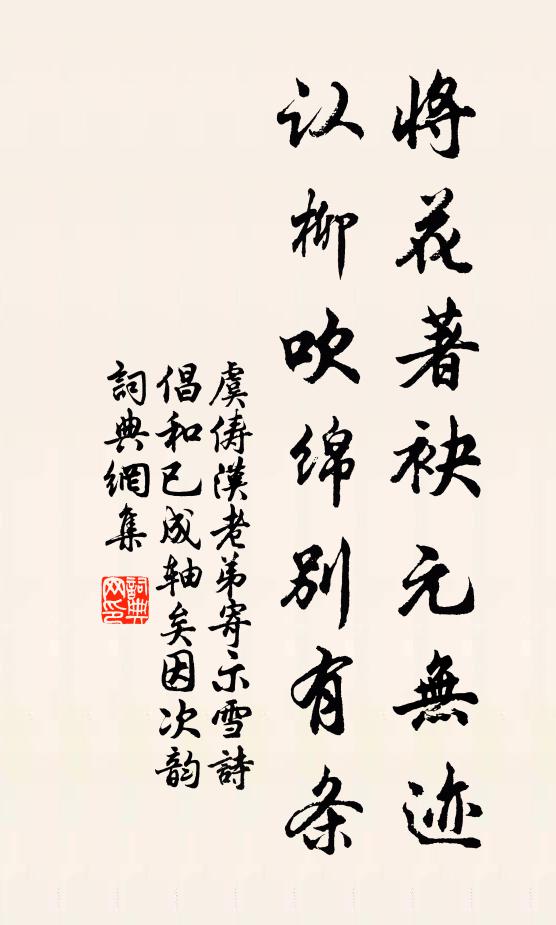 将花著袂元無迹
认柳吹绵别有条
虞俦漢老弟寄示雪詩
倡和已成轴矣因次韵
詞典網集
詞典網印